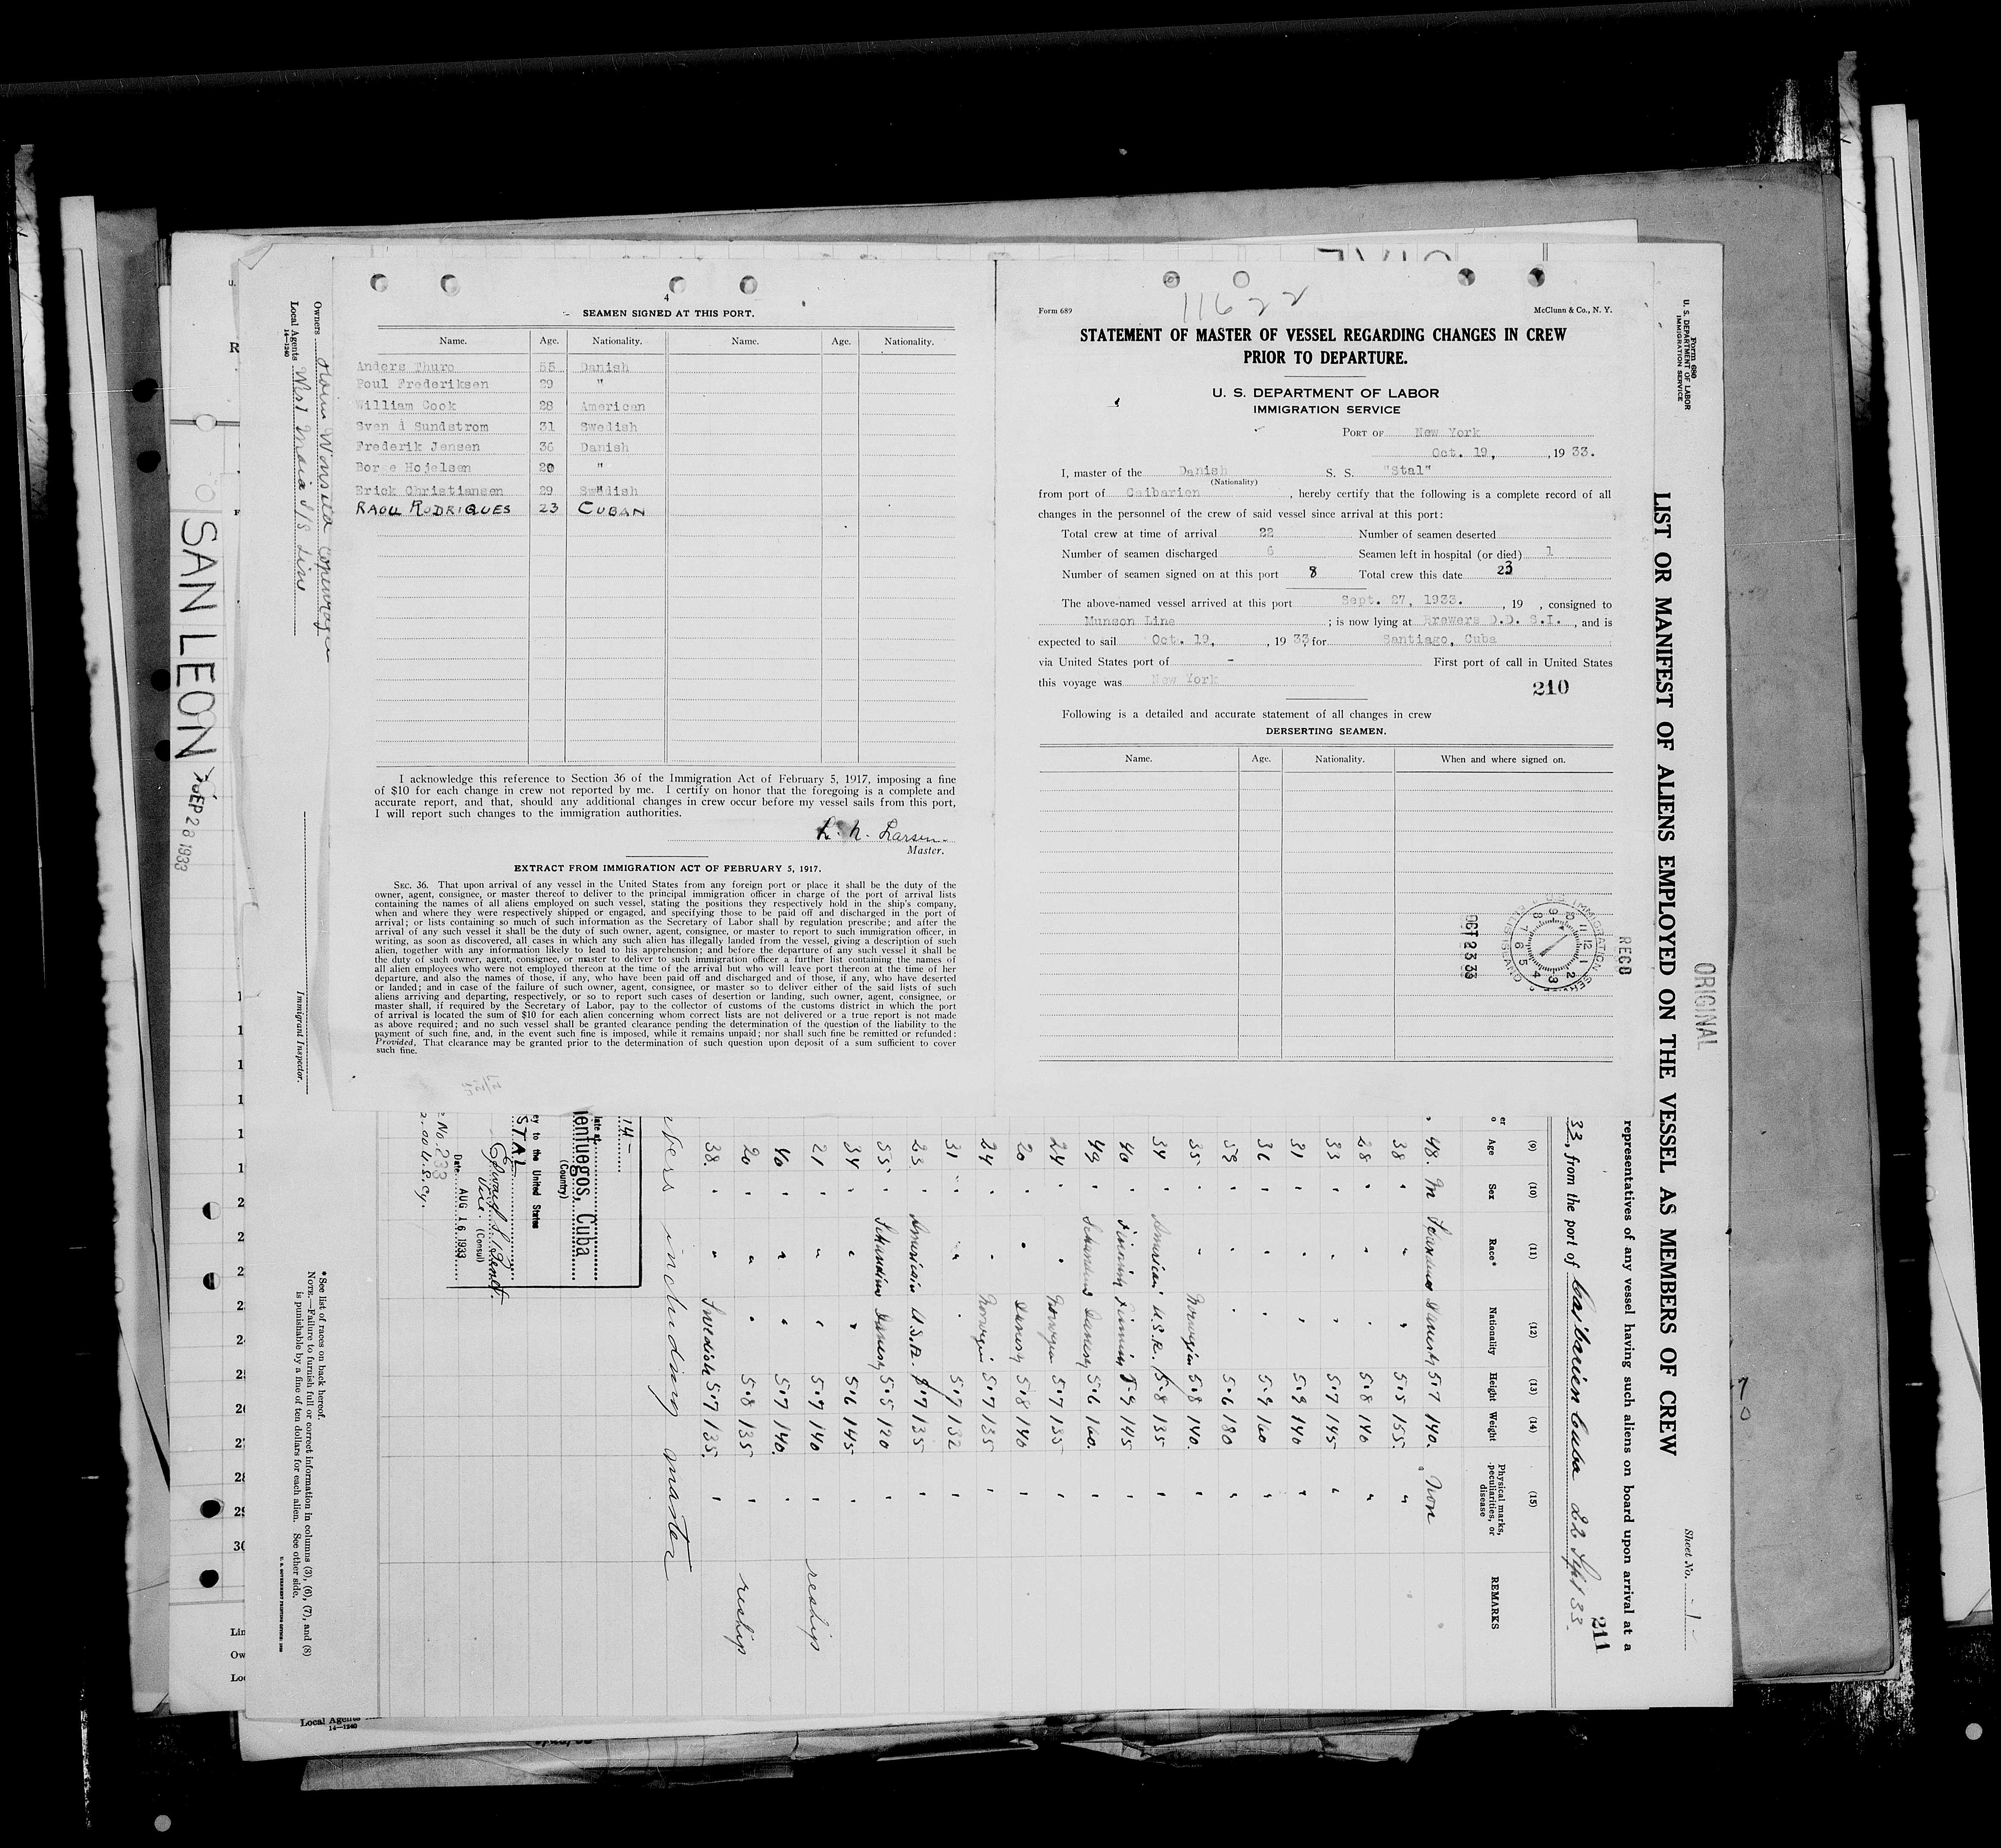 4
SEAMEN SIGNED AT THIS PORT.
Name. Age. Nationality. Name. Age. Nationality.
Anders Thuro 55 Danish
Poul Frederiksen 29 "
William Cook 28 American
Sven å Sundstrom 31 Swedish
Frederik Jensen 36 Danish
Borge Hojelsen 20 "
Erick Christiansen 29 Swedish
RAOU RODRIQUES 23 CUBAN
I acknowledge this reference to Section 36 of the Immigration Act of February 5, 1917, imposing a fine
of $10 for each change in crew not reported by me. I certify on honor that the foregoing is a complete and
accurate report, and that, should any additional changes in crew occur before my vessel sails from this port,
I will report such changes to the immigration authorities.
L. N. Larsen
Master.
EXTRACT FROM IMMIGRATION ACT OF FEBRUARY 5, 1917.
SEC. 36. That upon arrival of any vessel in the United States from any foreign port or place it shall be the duty of the
owner, agent, consignee, or master thereof to deliver to the principal immigration officer in charge of the port of arrival lists
containing the names of all aliens employed on such vessel, stating the positions they respectively hold in the ship's company,
when and where they were respectively shipped or engaged, and specifying those to be paid off and discharged in the port of
arrival; or lists containing so much of such information as the Secretary of Labor shall by regulation prescribe; and after the
arrival of any such vessel it shall be the duty of such owner, agent, consignee, or master to report to such immigration officer, in
writing, as soon as discovered, all cases in which any such alien has illegally landed from the vessel, giving a description of such
alien, together with any information likely to lead to his apprehension; and before the departure of any such vessel it shall be
the duty of such owner, agent, consignee, or master to deliver to such immigration officer a further list containing the names of
all alien employees who were not employed thereon at the time of the arrival but who will leave port thereon at the time of her
departure, and also the names of those, if any, who have been paid off and discharged and of those, if any, who have deserted
or landed; and in case of the failure of such owner, agent, consignee, or master so to deliver either of the said lists of such
aliens arriving and departing, respectively, or so to report such cases of desertion or landing, such owner, agent, consignee, or
master shall, if required by the Secretary of Labor, pay to the collector of customs of the customs district in which the port
of arrival is located the sum of $10 for each alien concerning whom correct lists are not delivered or a true report is not made
as above required; and no such vessel shall be granted clearance pending the determination of the question of the liability to the
payment of such fine, and, in the event such fine is imposed, while it remains unpaid; nor shall such fine be remitted or refunded:
Provided, That clearance may be granted prior to the determination of such question upon deposit of a sum sufficient to cover
such fine.
11622
Form 689 McClunn & Co., N. Y.
STATEMENT OF MASTER OF VESSEL REGARDING CHANGES IN CREW
PRIOR TO DEPARTURE.
U. S. DEPARTMENT OF LABOR
IMMIGRATION SERVICE
PORT OF New York
Oct. 19, , 19 33.
I, master of the Danish S. S. "Stal"
(Nationality)
from port of Caibarien , hereby certify that the following is a complete record of all
changes in the personnel of the crew of said vessel since arrival at this port:
Total crew at time of arrival 22 Number of seamen deserted
Number of seamen discharged 6 Seamen left in hospital (or died) 1
Number of seamen signed on at this port 8 Total crew this date 23
The above-named vessel arrived at this port Sept. 27, 1933. , 19 , consigned to
Munson Line ; is now lying at Brewers D.D. S.I. , and is
expected to sail Oct. 19, , 19 33, for Santiago, Cuba
via United States port of - First port of call in United States
this voyage was New York
210
Following is a detailed and accurate statement of all changes in crew
DERSERTING SEAMEN.
Name. Age. Nationality. When and where signed on.
OCT 23 33
U.S. IMMIGRATION SERVICE
ELLIS ISLAND
REC'D
ORIGINAL
Form 680
U. S. DEPARTMENT OF LABOR
IMMIGRATION SERVICE
Sheet No. 1
LIST OR MANIFEST OF ALIENS EMPLOYED ON THE VESSEL AS MEMBERS OF CREW
representatives of any vessel having such aliens on board upon arrival at a
211
33, from the port of Caibarien Cuba 22 Sept 33.
(9) (10) (11) (12) (13) (14) (15)
Age Sex Race* Nationality Height Weight Physical marks, peculiarities, or disease REMARKS
48. m Danesh 5·7 140. Non
38 " " " 5·5 155. "
28 " " " 5·8 140 "
33 " " " 5·7 145 "
31 " " " 5·9 140 "
36 " " " 5·9 160 "
59 " " " 5·6 180 "
35 " " Norwegin 5·8 140. "
34 " American U.S.A. 5·8 135 "
40 " 5·9 145 "
49 " Danesh 5·6 160. "
24 " " Norwegin 5·7 135 "
20 " " Danesh 5·8 140 "
24 " " Norwegin 5·7 135 "
31 " " " 5·7 132 "
23 " American U.S.A. 5·7 135 "
55 " Danesh 5·5 120 "
34 " " " 5·6 145 "
21 " " " 5·9 140 " reship
40 " " " 5·7 140. "
20 " " " 5·8 135 " reship
38. " " Swedish 5·7 135. "
including master
14-
enfuegos, Cuba
(Country)
ey to the United States
STAL
Vice (Consul)
Date AUG 16 1933
No. 233
*See list of races on back hereof.
NOTE.—Failure to furnish full or correct information in columns (3), (6), (7), and (8)
is punishable by a fine of ten dollars for each alien. See other side.
Owners
Local Agents
14-1240
Immigrant Inspector.
SAN LEON
SEP 28 1933
Local Agents
14-1240